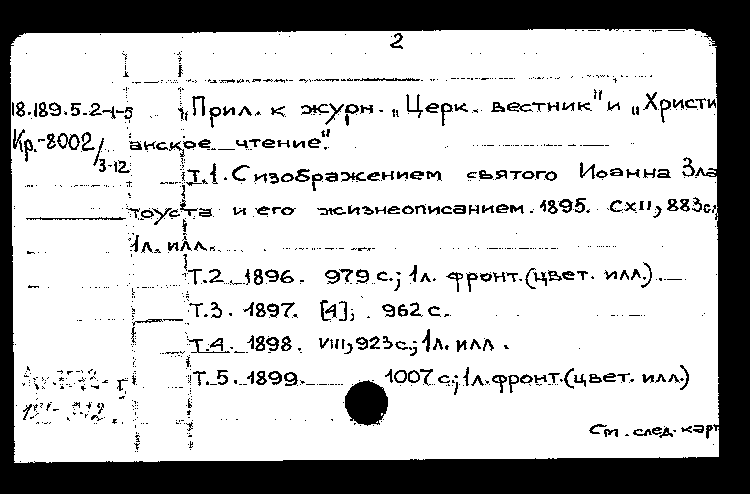 2
18.189.5.2-1-5 „Прил. к журн. „Церк. вестник" и „Христи
Кр.-8002/3-12 анское чтение".
Т.1. С изображением святого Иоанна Зла
тоуста и его жизнеописанием. 1895. CXII, 883с.;
1л. илл.
Т.2. 1896. 979 с.; 1л. фронт. (цвет. илл.).
Т.3. 1897. [4], 962 с.
Т.4. 1898. VIII, 923с.; 1л. илл.
Т.5. 1899. 1007 с.; 1л. фронт. (цвет. илл.)
См. след. карт